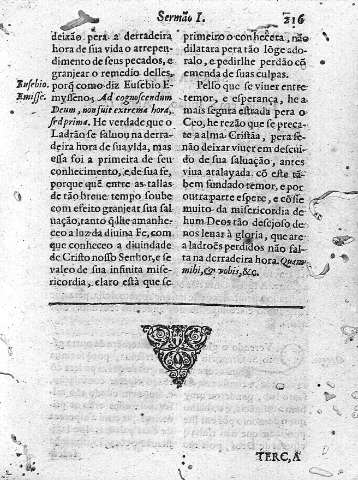 Sermão I.
216
deixão pera a derradeira
hora de sua vida o arrepen-
dimento de seus pecados, e
granjear o remedio delles,
porq̃ como diz Eusebio E-
mysseno. Ad cognoscendum
Deum, non fuit extrema hora,
sed prima. He verdade que o
Ladrão se saluou na derra-
deira hora de sua vida, mas
essa foi a primeira de seu
conhecimento, e de sua fe,
porque quẽ entre as tallas
de tão breue tempo soube
com efeito granjear sua sal
uação, tanto q̃ lhe amanhe-
ceo a luz da diuina Fe, com
que conheceo a diuindade
de Cristo nosso Senhor, e se
valeo de sua infinita mise-
ricordia, claro està que se
Eusebio.
Emisse.
primeiro o conheceta, não
dilatara pera tão lõge ado-
ralo, e pedirlhe perdão cõ
emenda de suas culpas.
Pello que se viuer entre
temor, e esperança, he a
mais segura estrada pera o
Ceo, he rezão que se preça-
te a alma Cristãa, pera se
não deixar viuer em descui
do de sua saluação, antes
viua atalayada cõ este tã-
bem fundado temor, e por
outra parte espere, e cõfie
muito da misericordia de
hum Deos tão desejoso de
nos leuar à gloria, que ate
a ladroẽs perdidos não fal-
ta na derradeira hora. Quam
mihi, & vobis, &c.
TERC,A